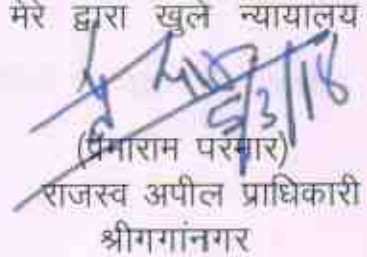 मेरे द्वारा खुले न्यायालय
5/3/18
(प्रेमाराम परमार)
राजस्व अपील प्राधिकारी
श्रीगगांनगर